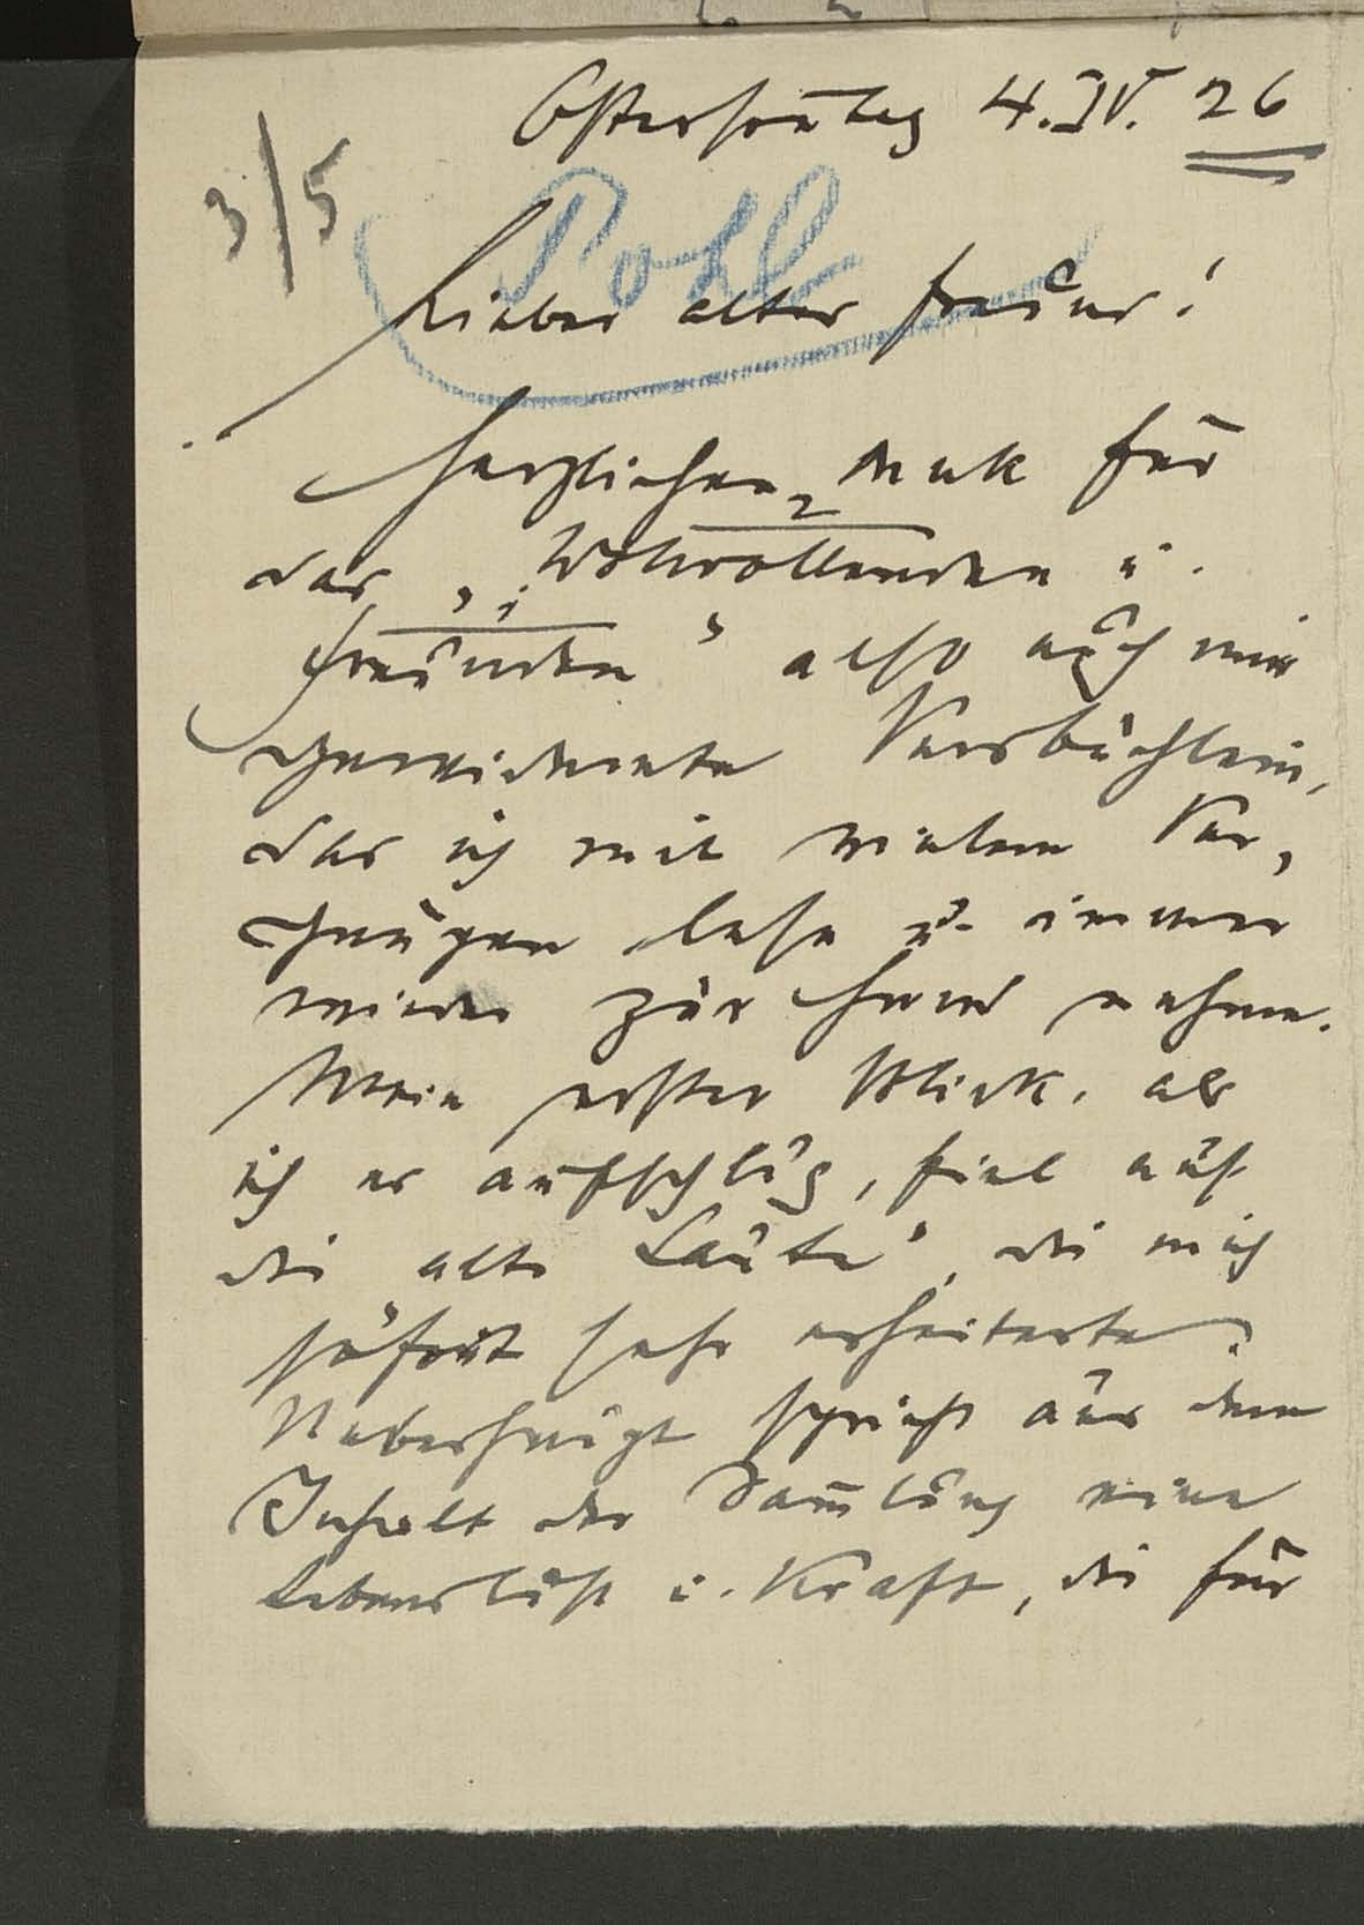 Ostersonntag 4.IV. 26
3/5
Pohl
Lieber alter Freund!
Herzlichen Dank für
das „Wohlwollenden u.
Freunden“ also auch mir
gewidmete Versbüchlein,
das ich mit vielem Ver-
gnügen lese u. immer
wieder zur Hand nehme.
Mein erster Blick, als
ich es aufschlug, fiel auf
die alte Laute“, die mich
sofort sehr erheiterte.
Ueberhaupt spricht aus dem
Inhalt der Sammlung eine
Lebenslust u. Kraft, die für